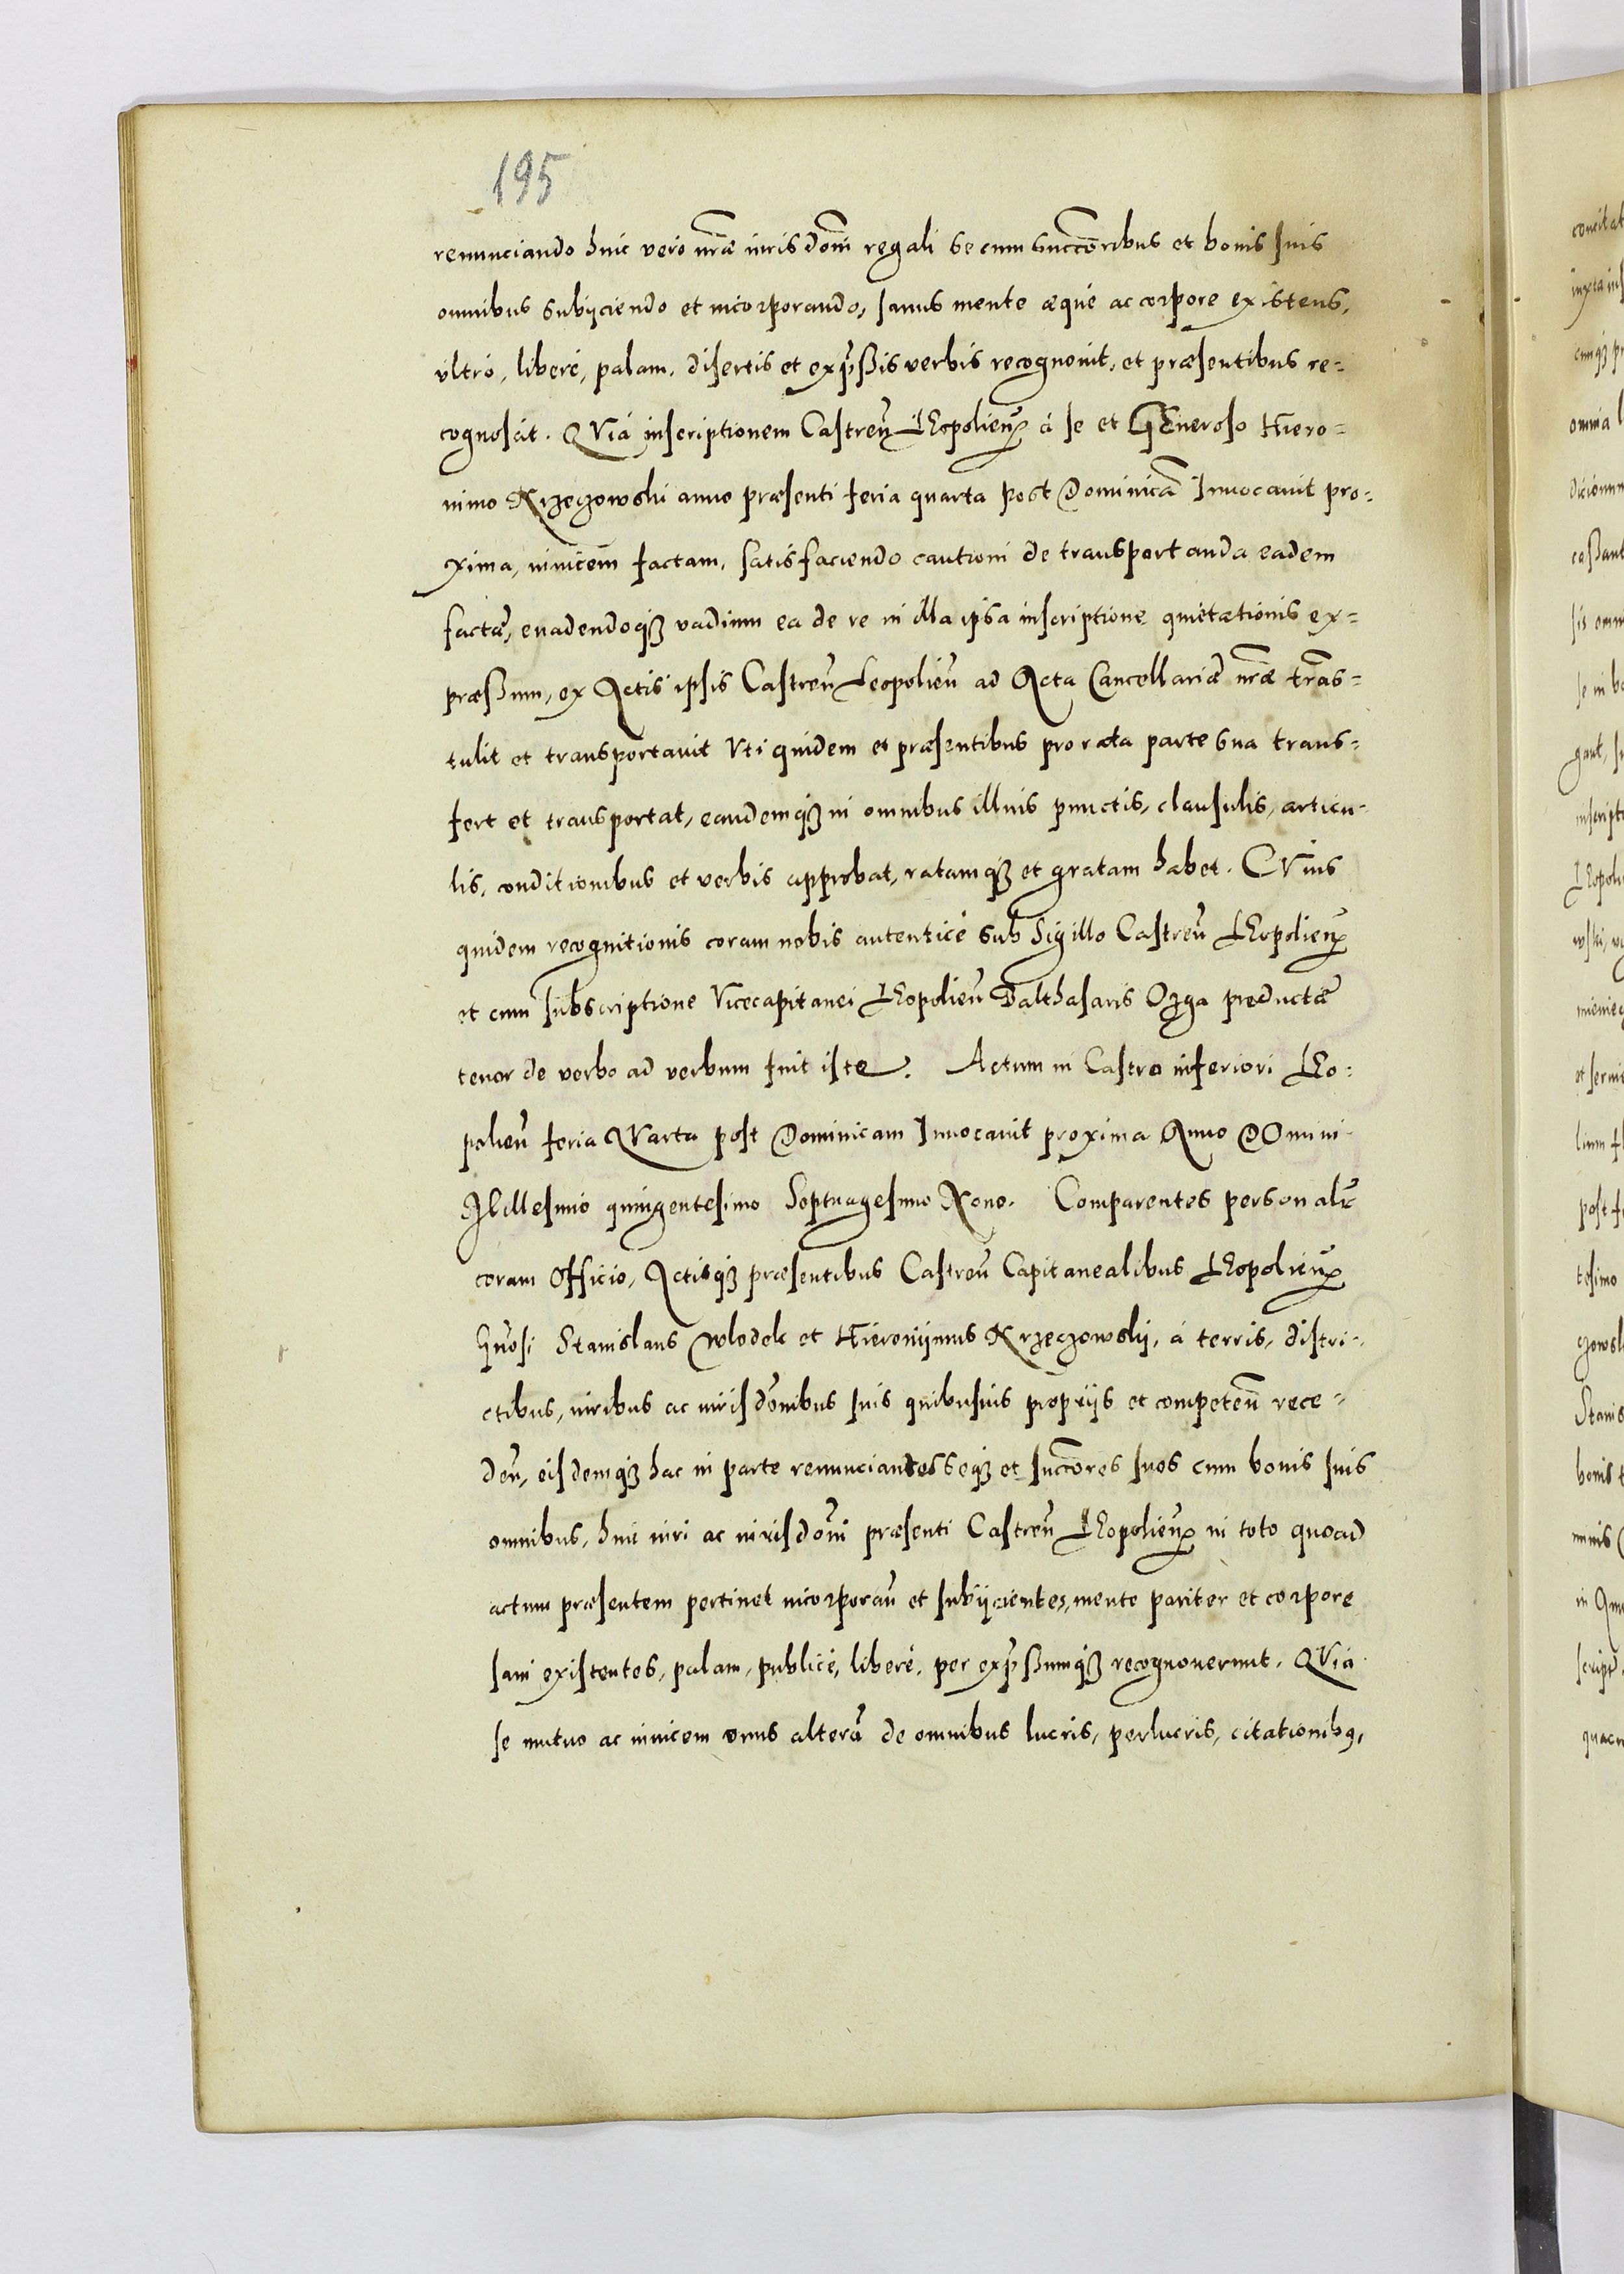 195
renunciando huic vero nrã iurisdoni regali se cum succoribus et bonis suis
omnibus subijciendo et incorporando, sanus mente æque ac corpore existens,
vltró, liberé, palam, disertis et exp̃ssis verbis recognouit, et præsentibus re-
cognoscit. QVia inscriptionem Castreñ LEopolieñ á se et GEneroso Hiero-
nimo Krzeczowski anno præsenti feria quarta post Dominicã Inuocauit pro-
xima, inuicem factam, satisfaciendo cautioni de transportanda eadem
factæ, euadendoq3 vadium ea de re in illa ipsa inscriptione quietationis ex-
præssum, ex Actis ipsis Castreñ Leopolieñ ad Acta Cancellariæ nrã trãs-
tulit et transportauit Vti quidem et præsentibus pro rata parte sua trans-
fert et transportat, eandemq3 in omnibus illius punctis, clausulis, articu-
lis, conditionibus et verbis approbat, ratamq3 et gratam habet. CVius
quidem recognitionis coram nobis autenticé sub Sigillo Castreñ LEopolieñ
et cum subscriptione Vicecapitanei LEopolieñ Balthasaris Ozga productæ
tenor de verbo ad verbum fuit iste. Actum in Castro inferiori LEo-
polieñ feria QVarta post Dominicam Inuocauit proxima Anno DOmini
Millesimo quingentesimo Septuagesimo Nono. Comparentes personalr̃
coram Officio, Actisq3 præsentibus Castreñ Capitanealibus LEopolieñ
Gñosi Stanislaus Wlodek et Hieronijmus Krzeczowskij, á terris, distri-
ctibus, iuribus ac iurisdonibus suis quibusuis proprijs et competeñ rece-
deñ, eisdemq3 hac in parte renunciantes seq3 et succores suos cum bonis suis
omnibus, huic iuri ac iurisdoni præsenti Castreñ LEopolieñ in toto quoad
actum præsentem pertinet incorporañ et subijcientes, mente pariter et corpore
sani existentes, palam, publicé, liberé, per exp̃ssumq3 recognouerunt. QVia
se mutuo ac inuicem vnus alterũ de omnibus lucris, perlucris, citationib9,